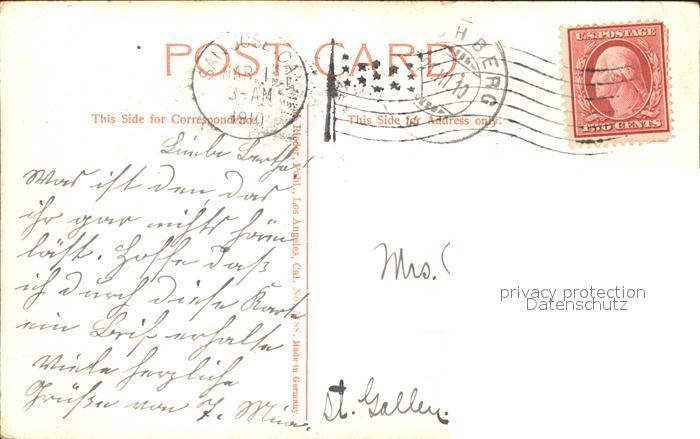 POST CARD.
SAN JOSE, CAL.
MAR 1
3-AM
1910
HBERG
10
U.S. POSTAGE
TWO CENTS
This Side for Correspondence.
This Side for Address only.
Liebe Bertha!
Was ist den das
ihr gar nichts hören
läßt. Hoffe daß
ich durch diese Karte
ein Brief erhalte
Viele herzliche
Grüße von F.
Rieder, Publ., Los Angeles, Cal. No. 88. Made in Germany.
Mrs.
privacy protection
Datenschutz
St. Gallen.